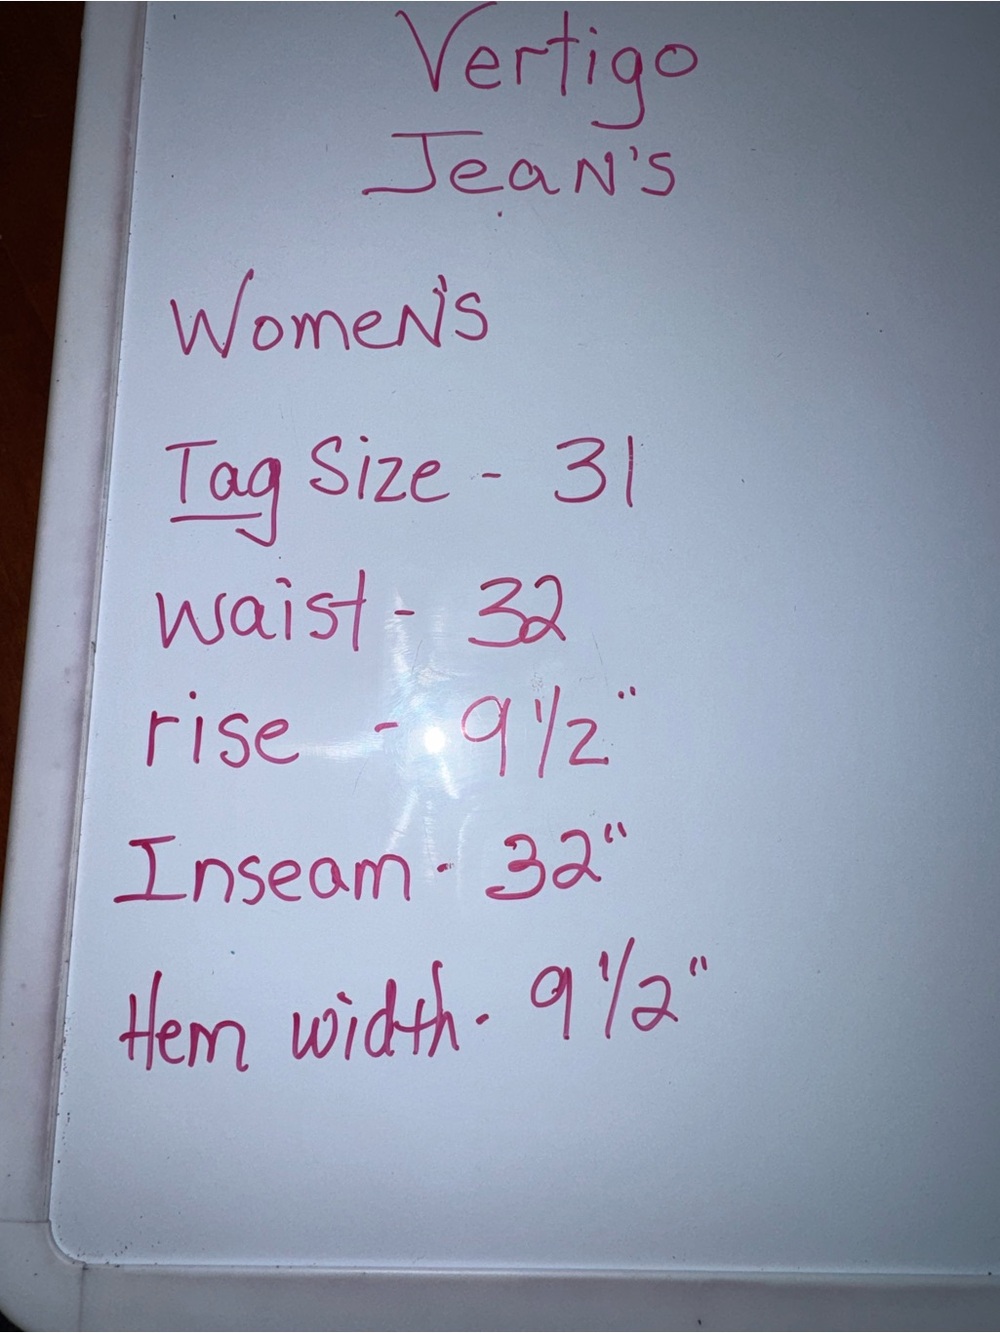 Vertigo
Jean's
Women's
Tag Size - 31
waist - 32
rise - 9 1/2"
Inseam - 32"
Hem width - 9 1/2"